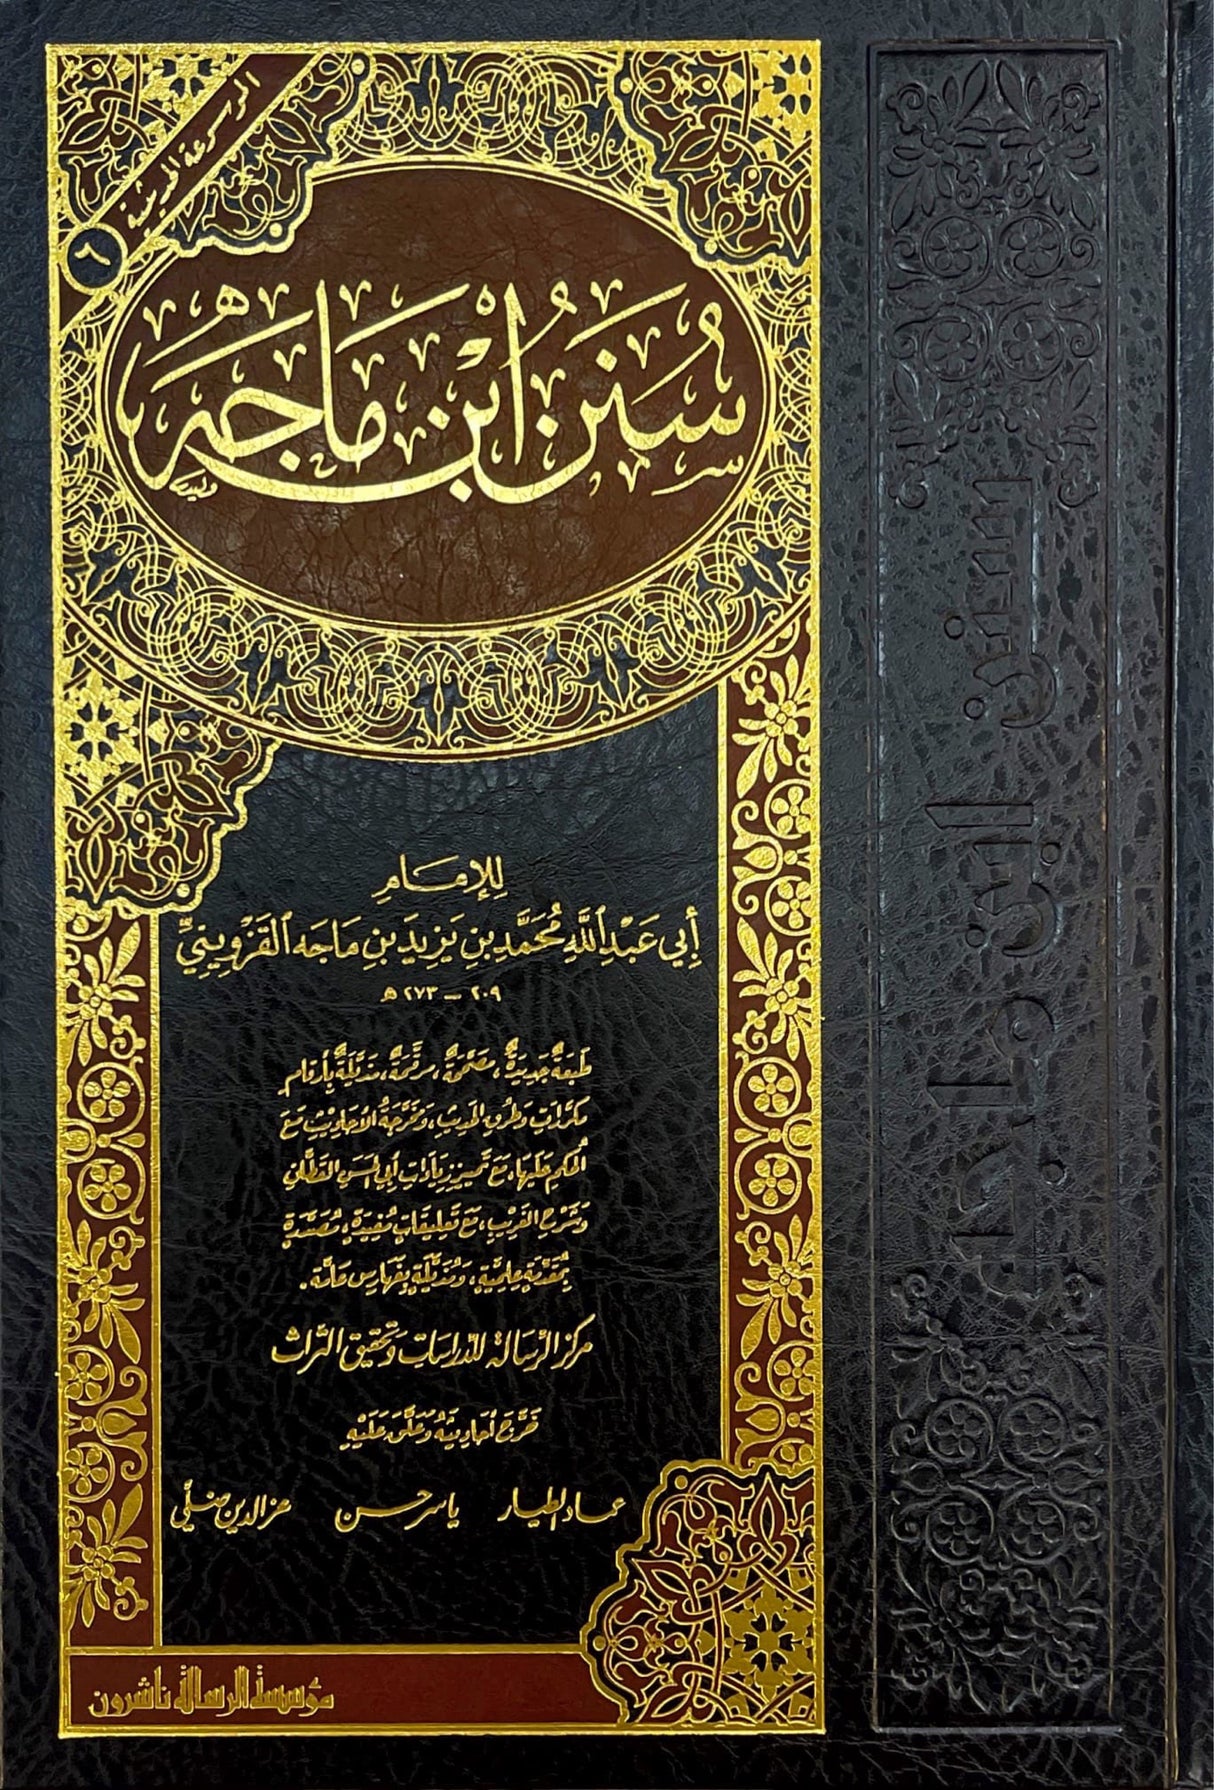 الموسوعة الحديثية
٦
سُنَنُ ابْنِ مَاجَهْ
لِلإمَامِ
أَبِي عَبْدِ اللَّهِ مُحَمَّدِ بنِ يَزِيدَ بنِ مَاجَه القَزْوِينِيِّ
٢٠٩ - ٢٧٣ هـ
طَبعَةٌ جَدِيدَةٌ، مصَحَّحَةٌ، مرقَّمَةٌ، مذَيَّلَةٌ بِأرقامِ
مكرَّراتِ وطُرقِ الحديثِ، ومخرَّجَةُ الأحَاديْثِ مَعَ
الحُكمِ عَليهَا، مَعَ تمييزِ زيَادَاتِ أبي الحسَنِ القَطَّانِ
وشَرْحِ الغَريبِ، مَعَ تَعليقاتٍ مُفيدَةٍ، مُصَدَّرَةٍ
بمُقدّمَةٍ عِلميَّةٍ، ومُذيَّلَةٍ بفَهارِسَ عَامَّة.
مركز الرّسالة للدّراسات وتحقيق التّراث
خَرَّجَ أحَاديثَهُ وَعَلَّقَ عَلَيْهِ
عماد الطيار ياسر حسن عز الدين ضلّي
مؤسسة الرسالة ناشرون
سنن ابن ماجه